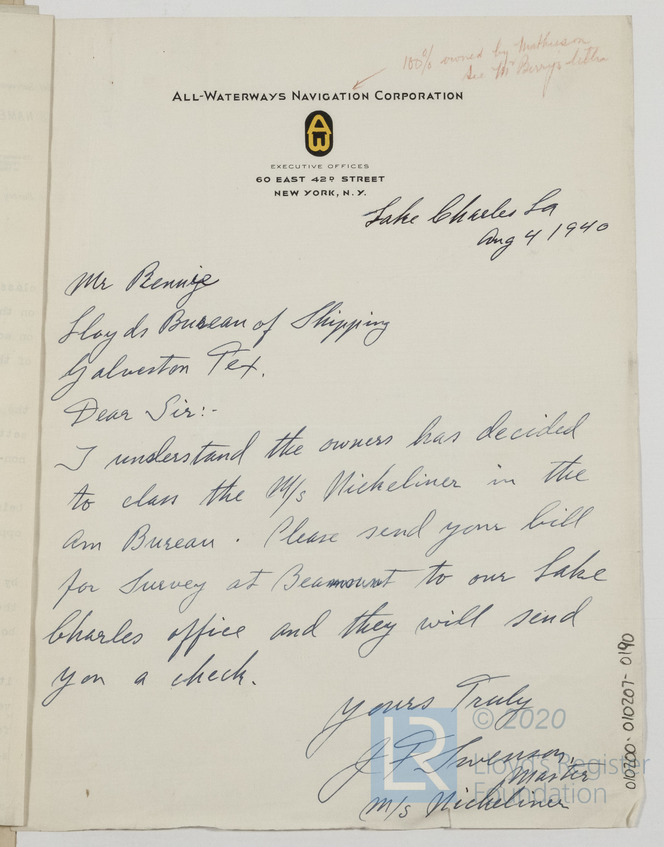 100% owned by Mathieson
See Mr Berry's letter
ALL-WATERWAYS NAVIGATION CORPORATION
AW
EXECUTIVE OFFICES
60 EAST 42D STREET
NEW YORK, N. Y.
Lake Charles La
Aug 4 1940
Mr Bennie
Lloyds Bureau of Shipping
Galveston Tex.
Dear Sir:-
I understand the owners has decided
to class the M/s Nickeliner in the
Am Bureau. Please send your bill
for Survey at Beaumount to our Lake
Charles office and they will send
you a check.
Yours Truly
J F Swenson,
Master
M/s Nickeliner
LR © 2020
Lloyd's Register
Foundation
010200-010207-0190